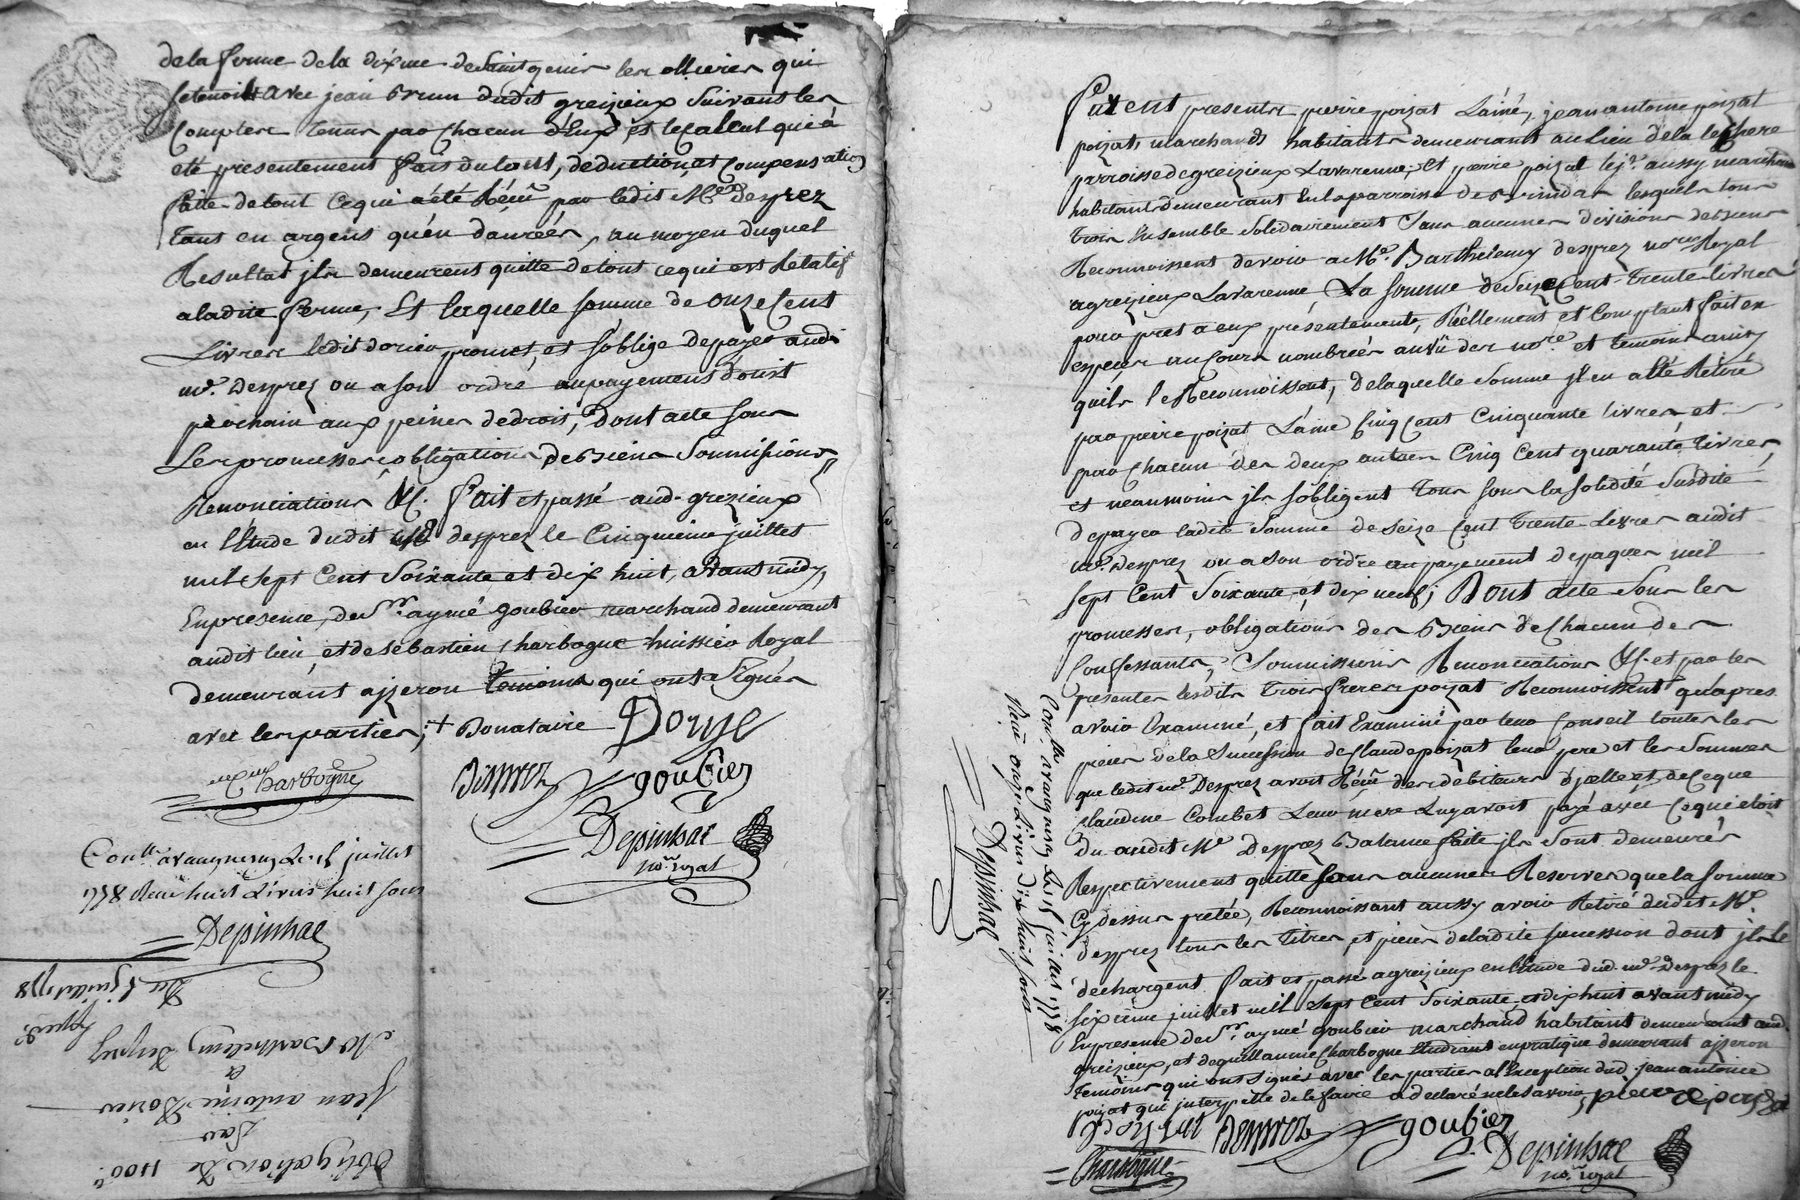 de la ferme de la dixme de Saint genis les ollieres qui
se tenoit avec jean Brun dudit greizieux Suivant les
Comptes tenus par Chacun d'Eux, et le Calcul qui a
eté presentement fait du tout, deduction, et Compensation
faite de tout Ce qui a été Reçu par ledit Me Desprez
tant en argent qu'en danrées, au moyen duquel
Resultat jls demeurent quitte de tout ce qui est Relatif
a ladite ferme, Et laquelle somme de onze Cent
Livres ledit dorier promet, et s'oblige de payer aud.
me. Desprez ou a son ordre au payement d'oust
prochain aux peines de droit, Dont acte sous
Les promesses obligations de Biens Soumissions
Renonciations &c. fait et passé aud. grezieux
en l'Etude dudit Me desprez le Cinquieme juillet
mil sept Cent Soixante et dix huit, avant midy,
En presence de Sr. aymé goubier marchand demeurant
audit lieu, et de sébastien Charbogne huissier Royal
demeurant a jzeron temoins qui ont Signés
avec les parties; + Donataire Dorije
Charbogne
Desprez goubier
Depinhac
no.re royal
Conlle. a vaugneray Le 15 juillet
1778 Reçu huit Livres huit sous
Depinhac
Du 5 juillet 1778
Me Barthelemy Desprez
a
jean antoine Dorier
Par
Obligation de 1100.
Furent presents pierre poizat L'ainé, jean antoine poizat
poizat marchands habitants demeurant au Lieu de la lechere
parroisse de greizieux Lavarenne, Et pierre poizat le jne. aussy marchand
habitant demeurant En la parroisse de Brindas lesquels tous
trois Ensemble Solidairement Sans aucune division de biens
Reconnoissent devoir a Me. Barthelemy Desprez nore Royal
a greizieux Lavarenne, La somme de Seize Cent trente livres
pour pret a eux présentement, Réellement et Comptant fait en
especes au Cours nombrées au vü des nore. et temoins ainsy
qu'ils le Reconnoissent, de laquelle Somme jl en a été Retiré
par pierre poizat L'ainé Cinq Cent Cinquante livres, et
par Chacun des deux autres Cinq Cent quarante livres,
et neanmoins jls s'obligent tous sous la solidité Susdite
de payer ladite Somme de seize Cent trente Livres audit
me. Desprez ou a Son ordre au payement de paques mil
sept Cent Soixante et dix neuf; Dont acte Sous les
promesses, obligations des Biens de Chacun des
Confessants, Soumissions Renonciations &c. et par les
presentes lesdits trois freres poizat Reconnoissent qu'apres
avoir Examiné, et fait Examiné par leur Conseil toutes les
pieces de la Sucession de Claude poizat leur pere et les Sommes
que ledit me. Desprez avoit Reçu des debiteurs d'jcelle et de ce que
Claudine Combet Leur mere Luy avoit payé avec Ce qui etoit
Du audit Me Desprez Balance faite jls Sont demeurés
Respectivement quitte sans aucunes Reserves que la somme
Cy dessus pretée, Reconnoissant aussy avoir Retiré dudit Me.
Desprez tous les titres, et pieces de ladite sucession dont jls le
dechargent. fait et passé a greizieux en l'Etude dud. me. Desprez le
sixieme juillet mil Sept Cent Soixante et dix huit avant midy
En presence de Sr. aymé goubier marchand habitant demeurant aud.
greizieux, et de guillaume Charbogne Etudiant en pratique demeurant a jzeron
temoins qui ont Signés avec les parties a l'Exception dud. jean antoine
poizat qui jnterpellé de le faire a declaré ne le Savoir, pierre poizat
Desprez goubier
Charbogne
Depinhac
no.re royal
Conlle. a vaugneray Le 15 juillet 1778
Reçu onze Livres dix huit sous
Depinhac